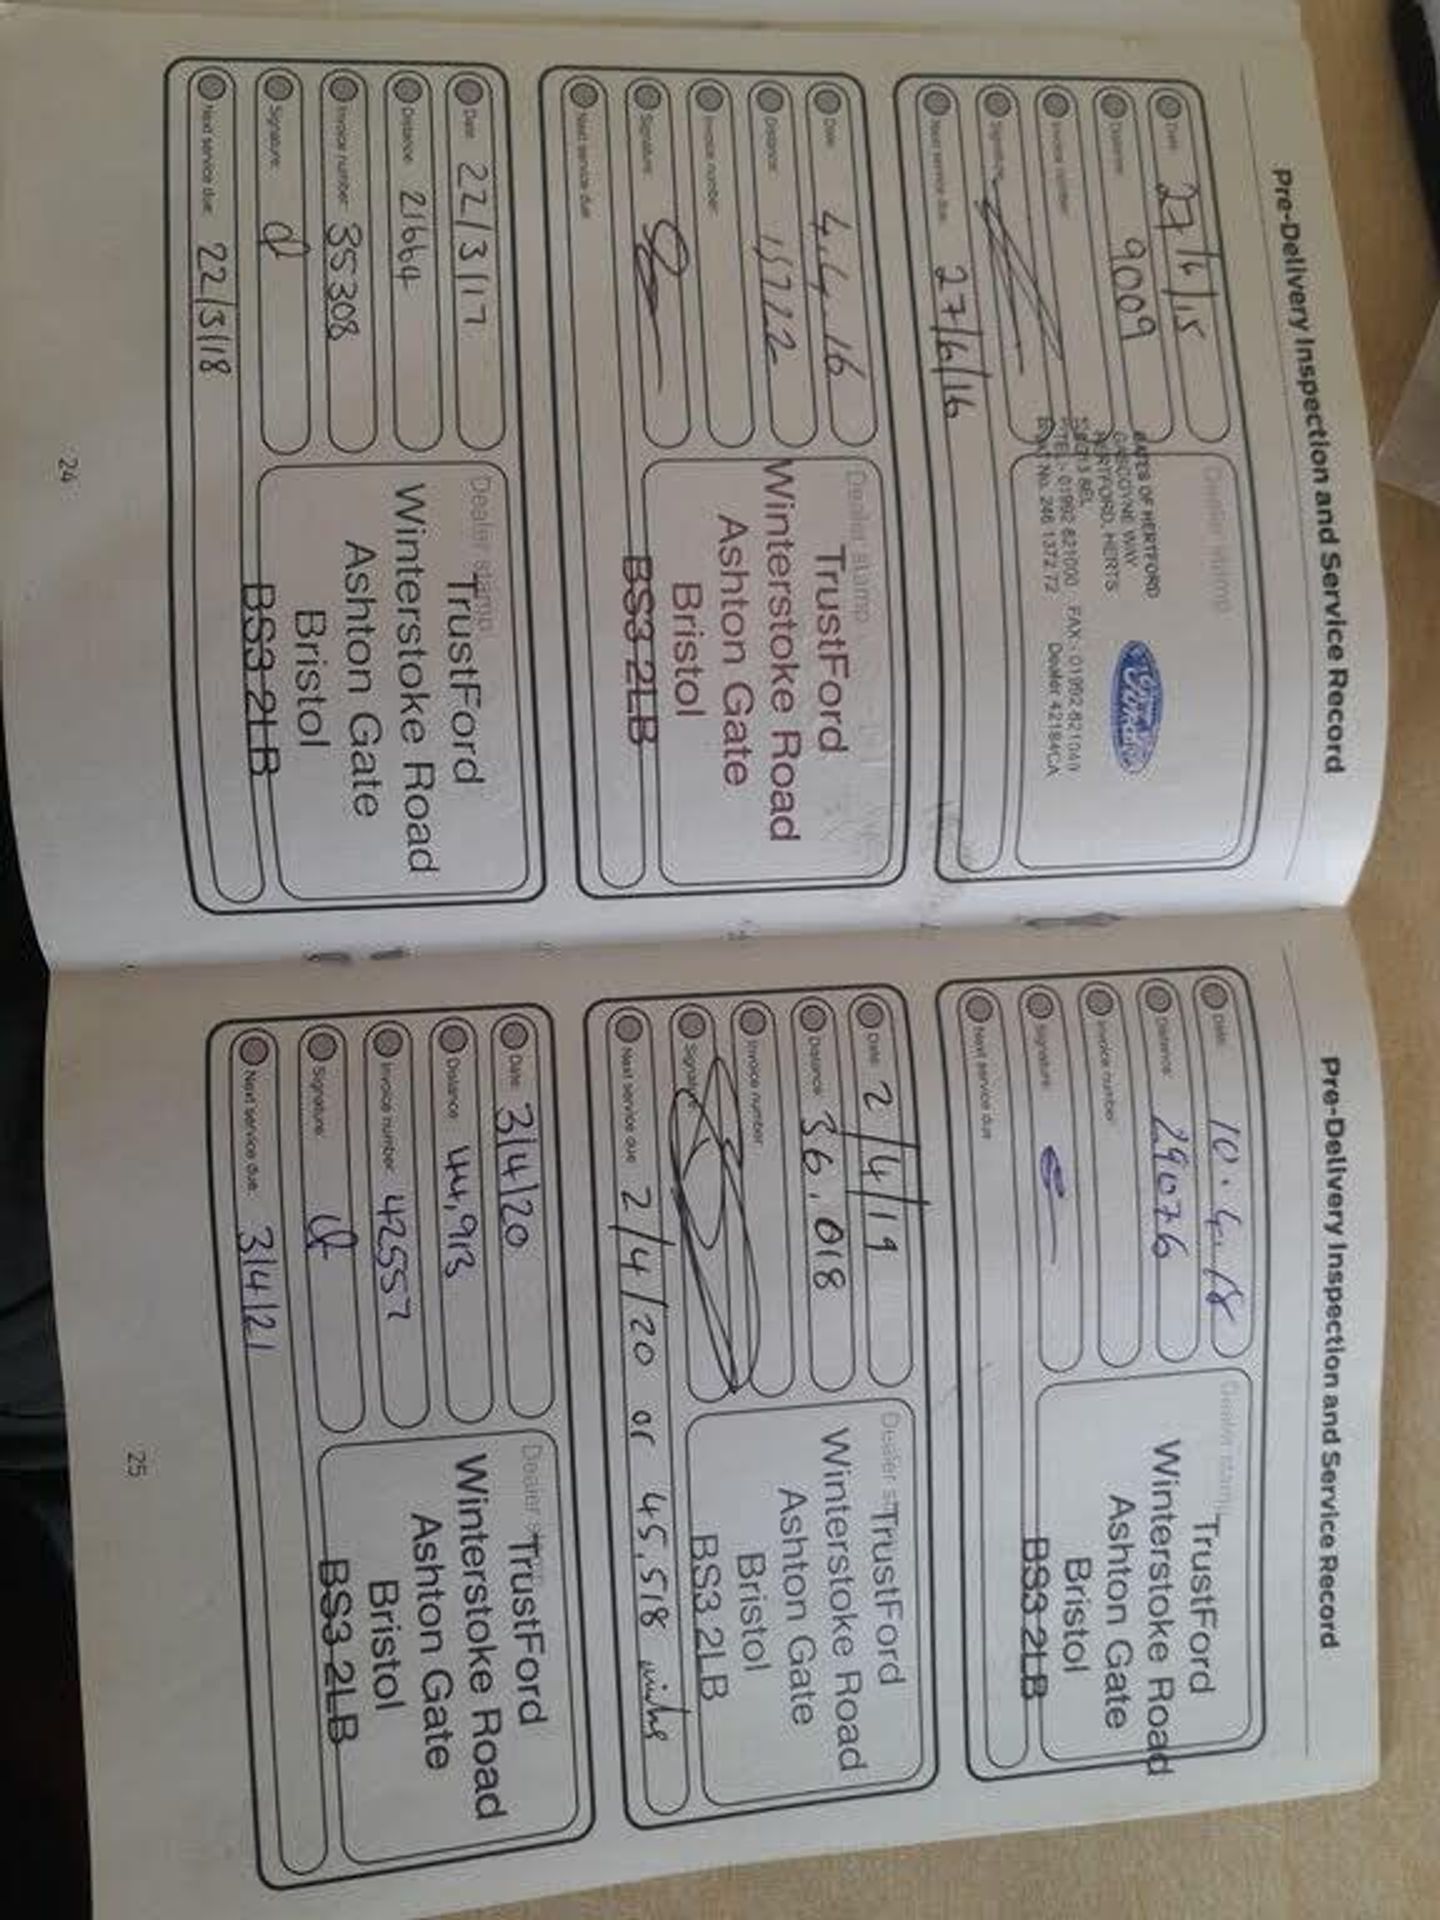 Pre-Delivery Inspection and Service Record
Date:
Distance: 9009
Invoice number:
Signature:
Next service due: 27/4/16
Dealer stamp
GATES OF HERTFORD
GASCOYNE WAY
HERTFORD, HERTS
TEL - 01992 821000 FAX - 01992 821040
No. 246 1372 72 Dealer 42184CA
Ford
Date: 4.4.16
Distance: 15722
Invoice number:
Signature:
Next service due:
Dealer stamp
TrustFord
Winterstoke Road
Ashton Gate
Bristol
BS3 2LB
Date: 22/3/17
Distance: 21664
Invoice number: 35308
Signature:
Next service due: 22/3/18
Dealer stamp
TrustFord
Winterstoke Road
Ashton Gate
Bristol
BS3 2LB
24
Pre-Delivery Inspection and Service Record
Date: 10.4.18
Distance: 29076
Invoice number:
Signature:
Next service due:
Dealer stamp
TrustFord
Winterstoke Road
Ashton Gate
Bristol
BS3 2LB
Date: 2/4/19
Distance: 36,018
Invoice number:
Signature:
Next service due: 2/4/20 or 45,518
Dealer stamp
TrustFord
Winterstoke Road
Ashton Gate
Bristol
BS3 2LB
Date: 3/4/20
Distance: 44,913
Invoice number: 42557
Signature:
Next service due: 3/4/21
Dealer stamp
TrustFord
Winterstoke Road
Ashton Gate
Bristol
BS3 2LB
25